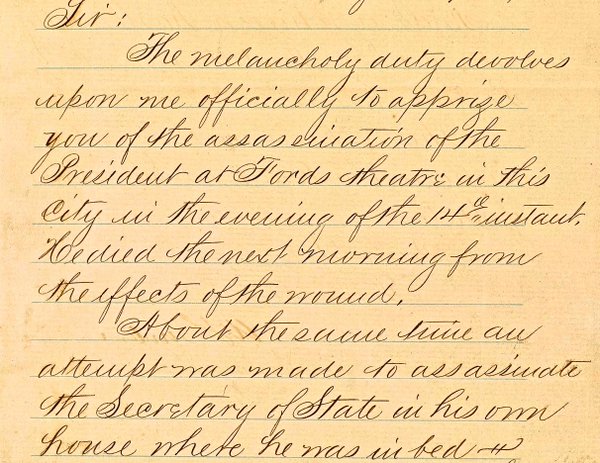 Sir:
The melancholy duty devolves
upon me officially to apprize
you of the assassination of the
President at Fords theatre in this
City in the evening of the 14th instant.
He died the next morning from
the effects of the wound.
About the same time an
attempt was made to assassinate
the Secretary of State in his own
house where he was in bed &